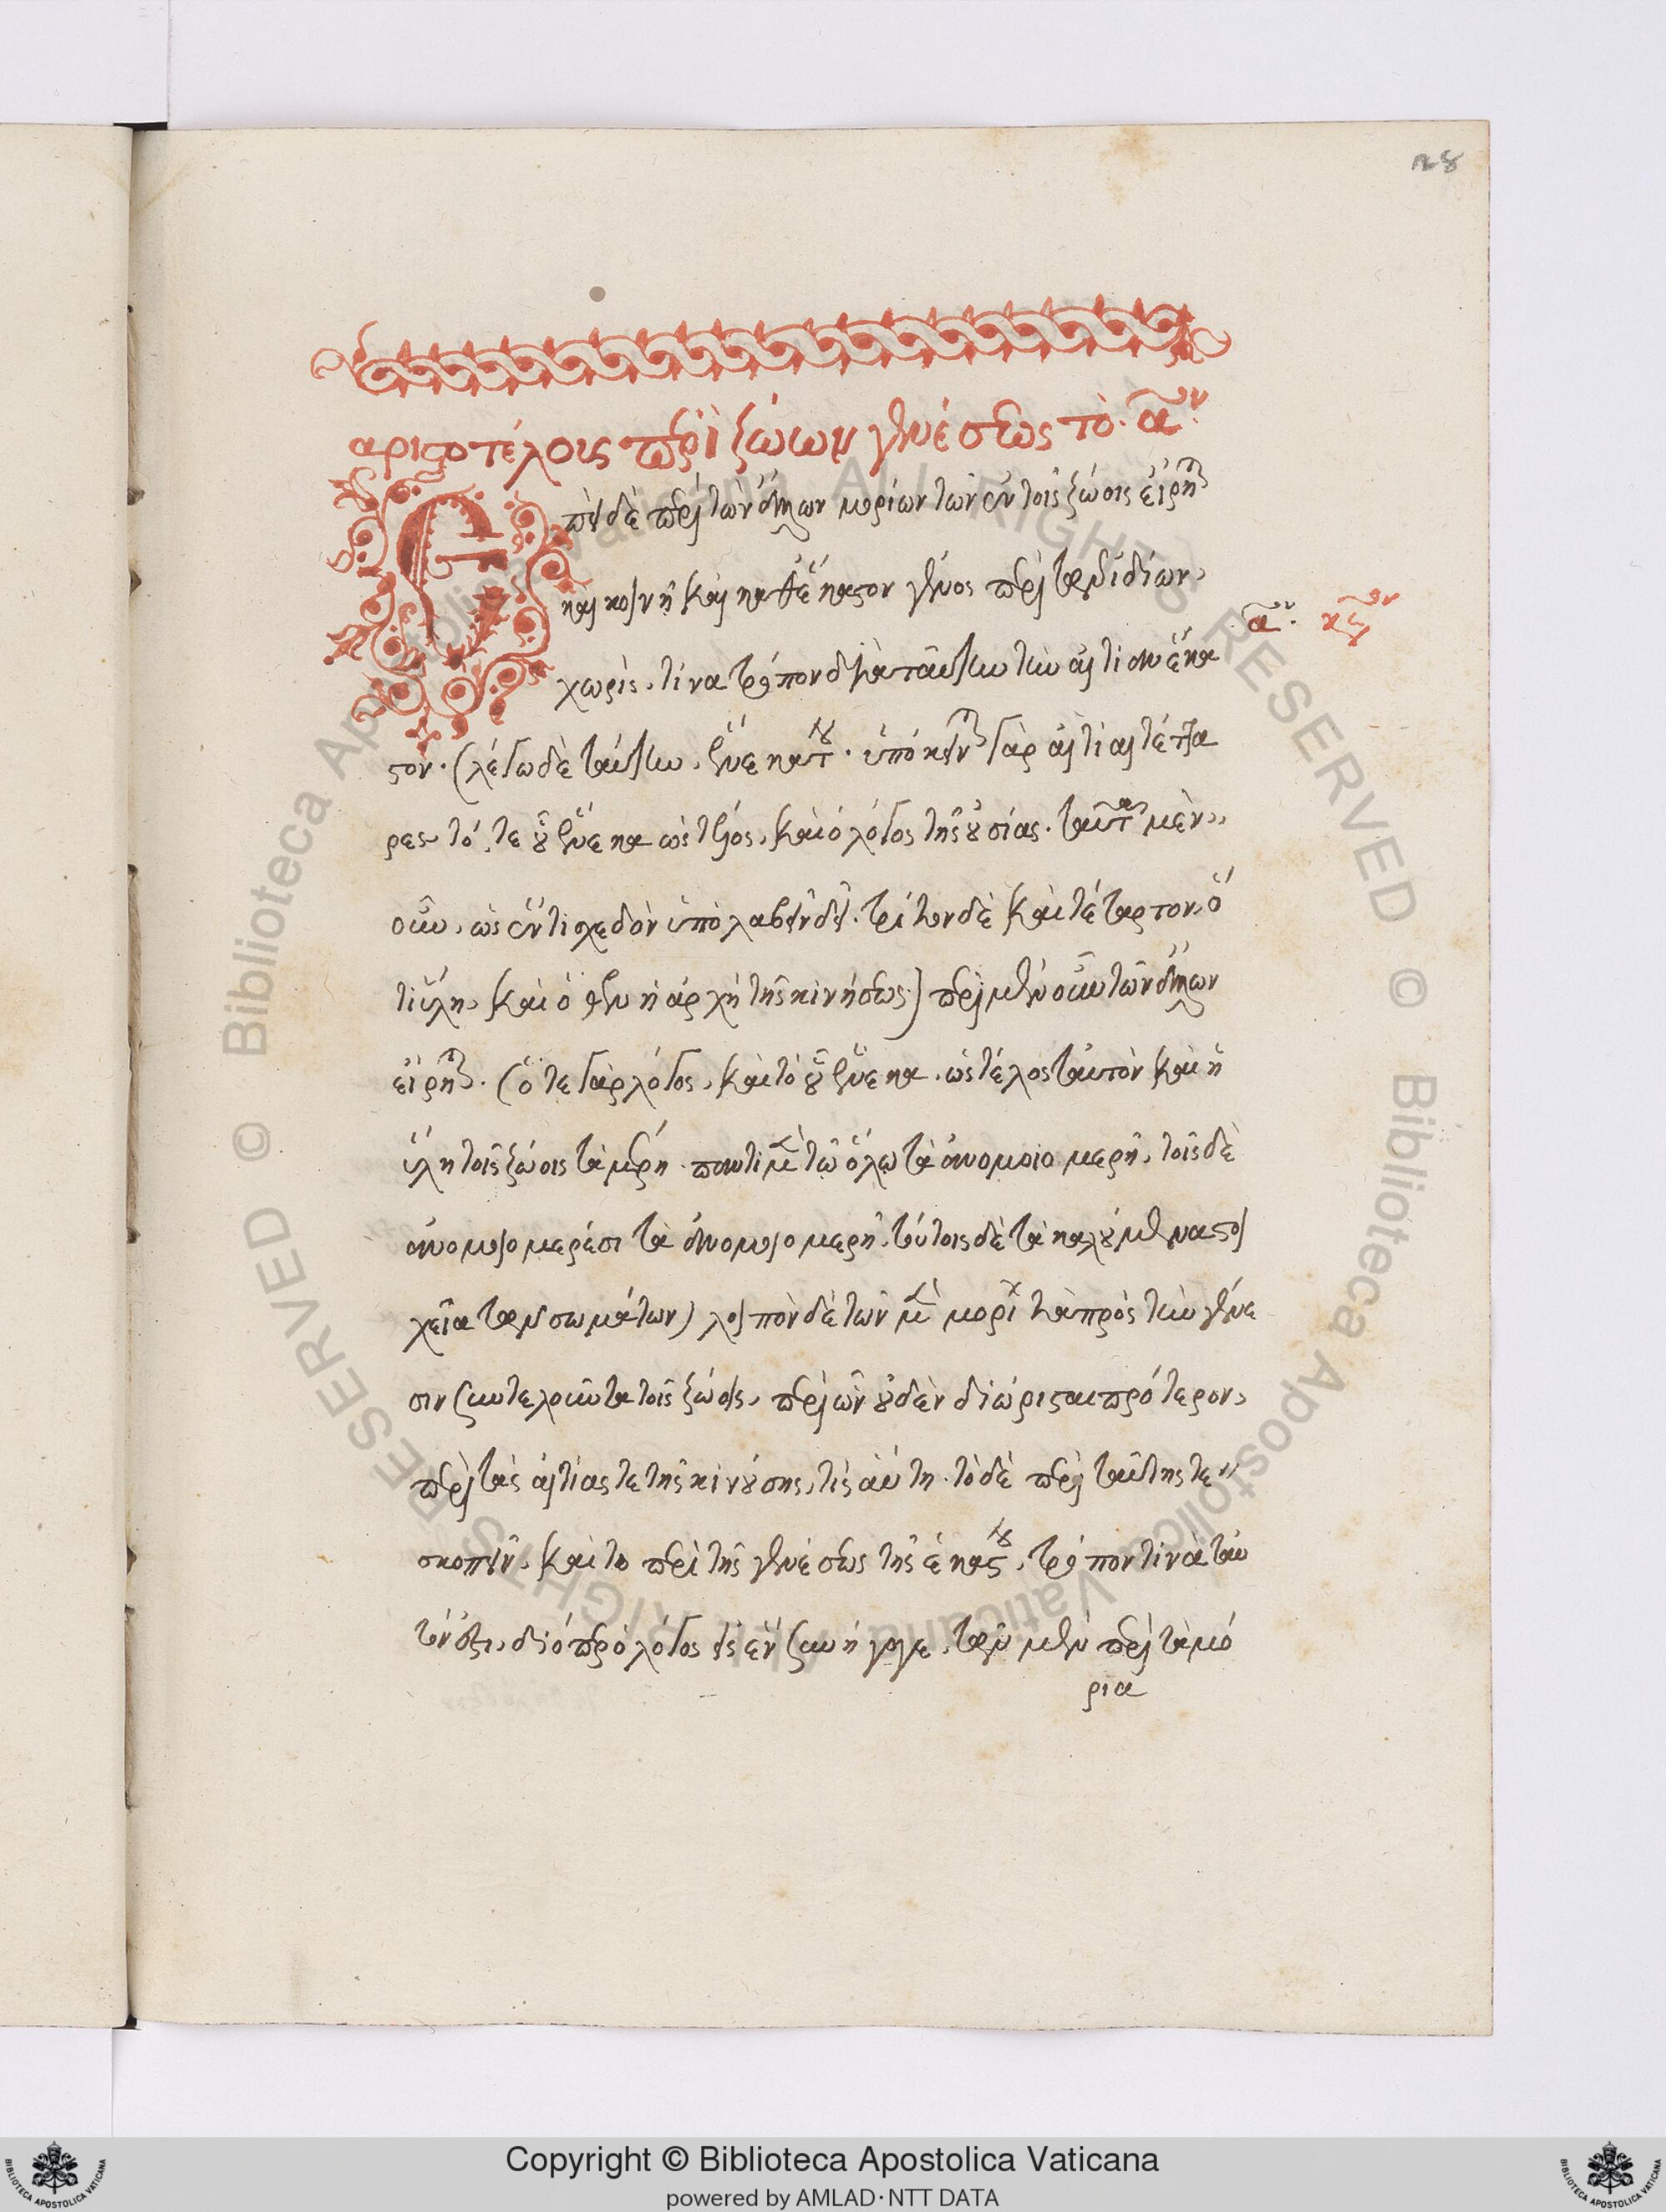 28
αριστοτέλους περὶ ζώων γενέσεως τὸ· α̅ον·
Ἐπεὶ δὲ περὶ τῶν ἄλλων μορίων τῶν ἐν τοῖς ζώοις εἴρηται
καὶ κοινῆ καὶ καθ' ἕκαστον γένος περὶ τῶν ἰδίων,
α̅ον· κεφ
χωρὶς, τίνα τρόπον διὰ ταύτην τὴν αἰτίαν ἕκα
στον· (λέγω δὲ ταύτην, ἕνεκά του· ὑπόκεινται γὰρ αἰτίαι τέττα
ρες τό, τε οὗ ἕνεκα ὡς τέλος, καὶ ὁ λόγος τῆς οὐσίας· ταῦτα μὲν,,
οὖν, ὡς ἕν τι σχεδὸν ὑπολαβεῖν δεῖ· τρίτον δὲ καὶ τέταρτον, ὅ
τι ὕλη, καὶ ὅθεν ἡ ἀρχὴ τῆς κινήσεως·) περὶ μὲν οὖν τῶν ἄλλων
εἴρηται· (ὅ τε γὰρ λόγος, καὶ τὸ οὗ ἕνεκα, ὡς τέλος ταυτὸν καὶ ἡ
ὕλη τοῖς ζώοις τὰ μέρη· παντὶ μὲν τῶ ὅλω τὰ ἀνομοιομερῆ, τοῖς δὲ
ἀνομοιομερέσι τὰ ἀνομοιομερῆ, τούτοις δὲ τὰ καλούμενα στοι
χεῖα τῶν σωμάτων) λοιπὸν δὲ τῶν μὲν μορίων τὰ πρὸς τὴν γένε
σιν συντελοῦντα τοῖς ζώοις, περὶ ὧν οὐδὲν διώρισται πρότερον,
περὶ τὰς αἰτίας τε τῆς κινούσης, τίς αὕτη· τὸ δὲ περὶ ταύτης τε,,
σκοπεῖν, καὶ το περὶ τῆς γενέσεως τῆς ἑκάστου, τρόπον τινὰ ταυ
τόν ἐστι, διόπερ ὁ λόγος εἰς ἓν συνήγαγε, τῶν μὲν περὶ τὰ μό
ρια
Copyright © Biblioteca Apostolica Vaticana
powered by AMLAD·NTT DATA
© Biblioteca Apostolica Vaticana ALL RIGHTS RESERVED © Biblioteca Apostolica Vaticana ALL RIGHTS RESERVED
BIBLIOTECA APOSTOLICA VATICANA
BIBLIOTECA APOSTOLICA VATICANA